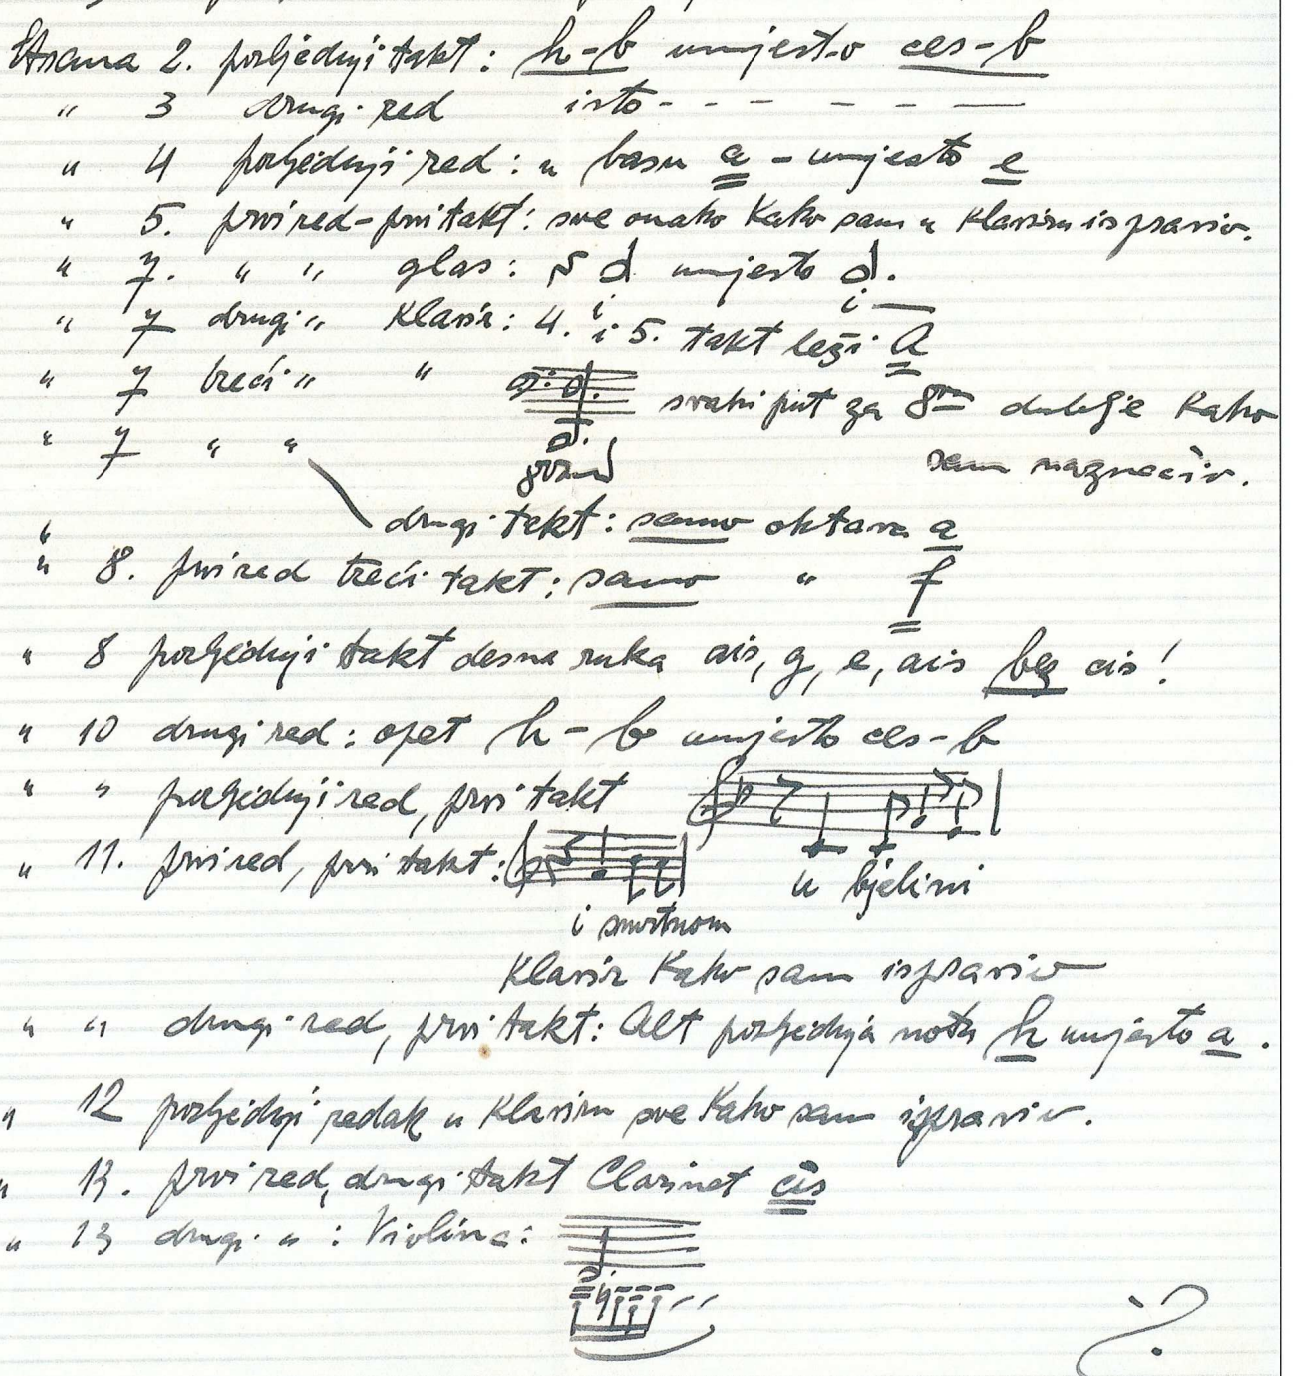 Strana 2. posljednji takt: h-b umjesto ces-b
" 3 drugi red isto - - - - - -
" 4 posljednji red: u basu a - umjesto e
" 5. prvi red - prvi takt: sve onako kako sam u klaviru ispraviv.
" 7. " " glas: umjesto
" 7 drugi " Klavir: 4. i 5. takt leži A
" 7 treći " " svaki put za 8va dublje kako
" 7 " " sam naznačiv.
" drugi takt: samo oktava a
" 8. prvi red treći takt: samo " f
" 8 posljednji takt desna ruka ais, g, e, ais bez cis!
" 10 drugi red: opet h - b umjesto ces-b
" " posljednji red, prvi takt
u bjelini
" 11. prvi red, prvi takt:
i smrtnom
Klavir kako sam ispraviv
" " drugi red, prvi takt: Alt posljednja nota h umjesto a.
" 12 posljednji redak u klaviru sve kako sam ispraviv.
" 13. prvi red, drugi takt Clarinet cis
" 13 drugi " : Violina: